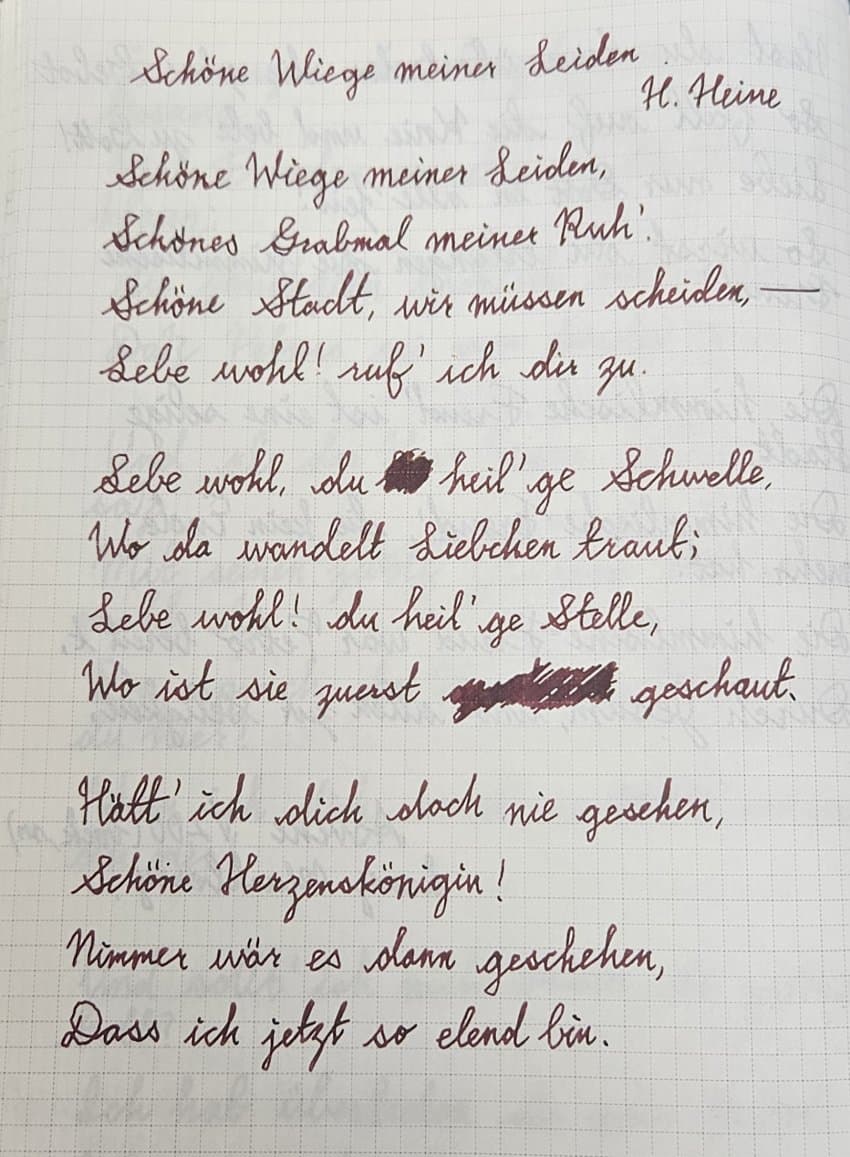 Schöne Wiege meiner Leiden
H. Heine
Schöne Wiege meiner Leiden,
Schönes Grabmal meiner Ruh'.
Schöne Stadt, wir müssen scheiden, —
Lebe wohl! ruf' ich dir zu.
Lebe wohl, du heil'ge Schwelle,
Wo da wandelt Liebchen traut;
Lebe wohl! du heil'ge Stelle,
Wo ist sie zuerst geschaut.
Hätt' ich dich doch nie gesehen,
Schöne Herzenskönigin!
Nimmer wär es dann geschehen,
Dass ich jetzt so elend bin.